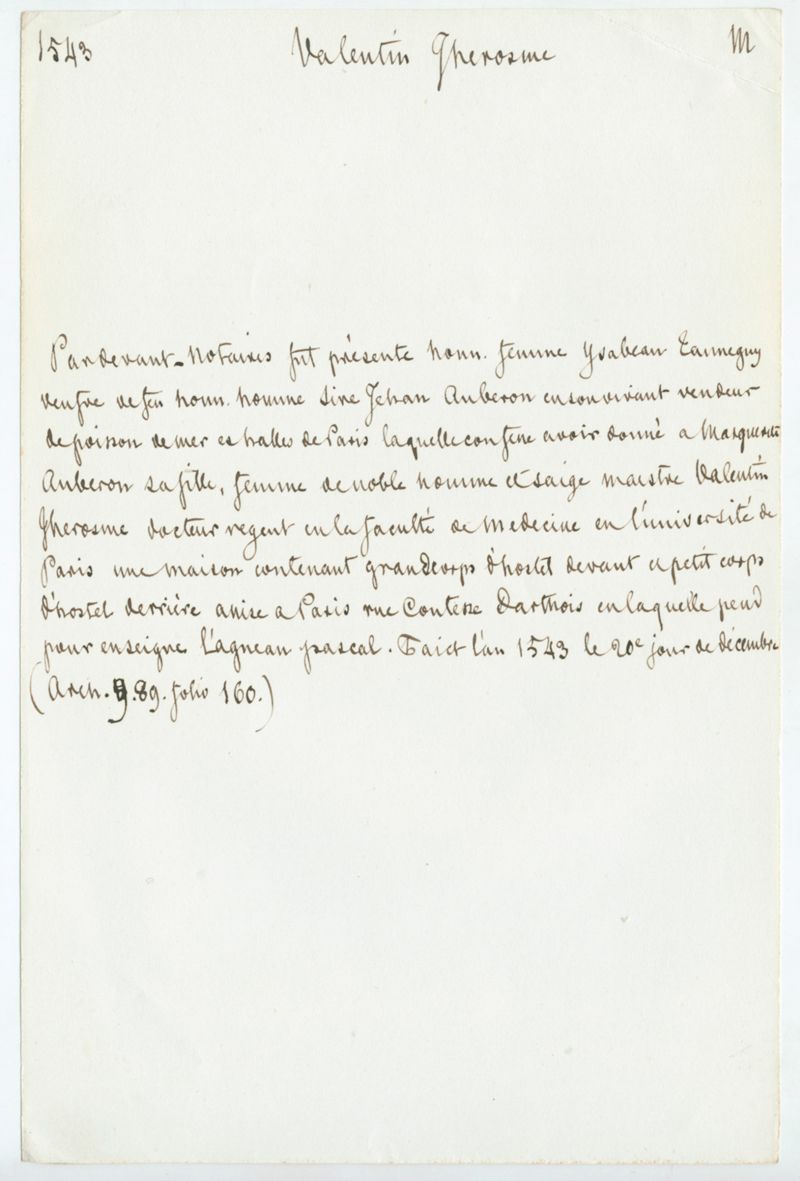 1543 Valentin Jherosme M
Pardevant-Notaires fut présente honn. femme Ysabeau Tanneguy
veufve de feu honn. homme Sire Jehan Auberon en son vivant vendeur
de poisson de mer es halles de Paris laquelle confesse avoir donné a Marguerite
Auberon sa fille, femme de noble homme et saige maestre Valentin
Jherosme docteur regent en la faculté de Medecine en l'université de
Paris une maison contenant grand corps d'hostel devant et petit corps
d'hostel derrière assise a Paris rue Contesse Darthois en laquelle pend
pour enseigne l'agneau pascal. Faict l'an 1543 le 20e jour de décembre
(Arch. 89. folio 160.)